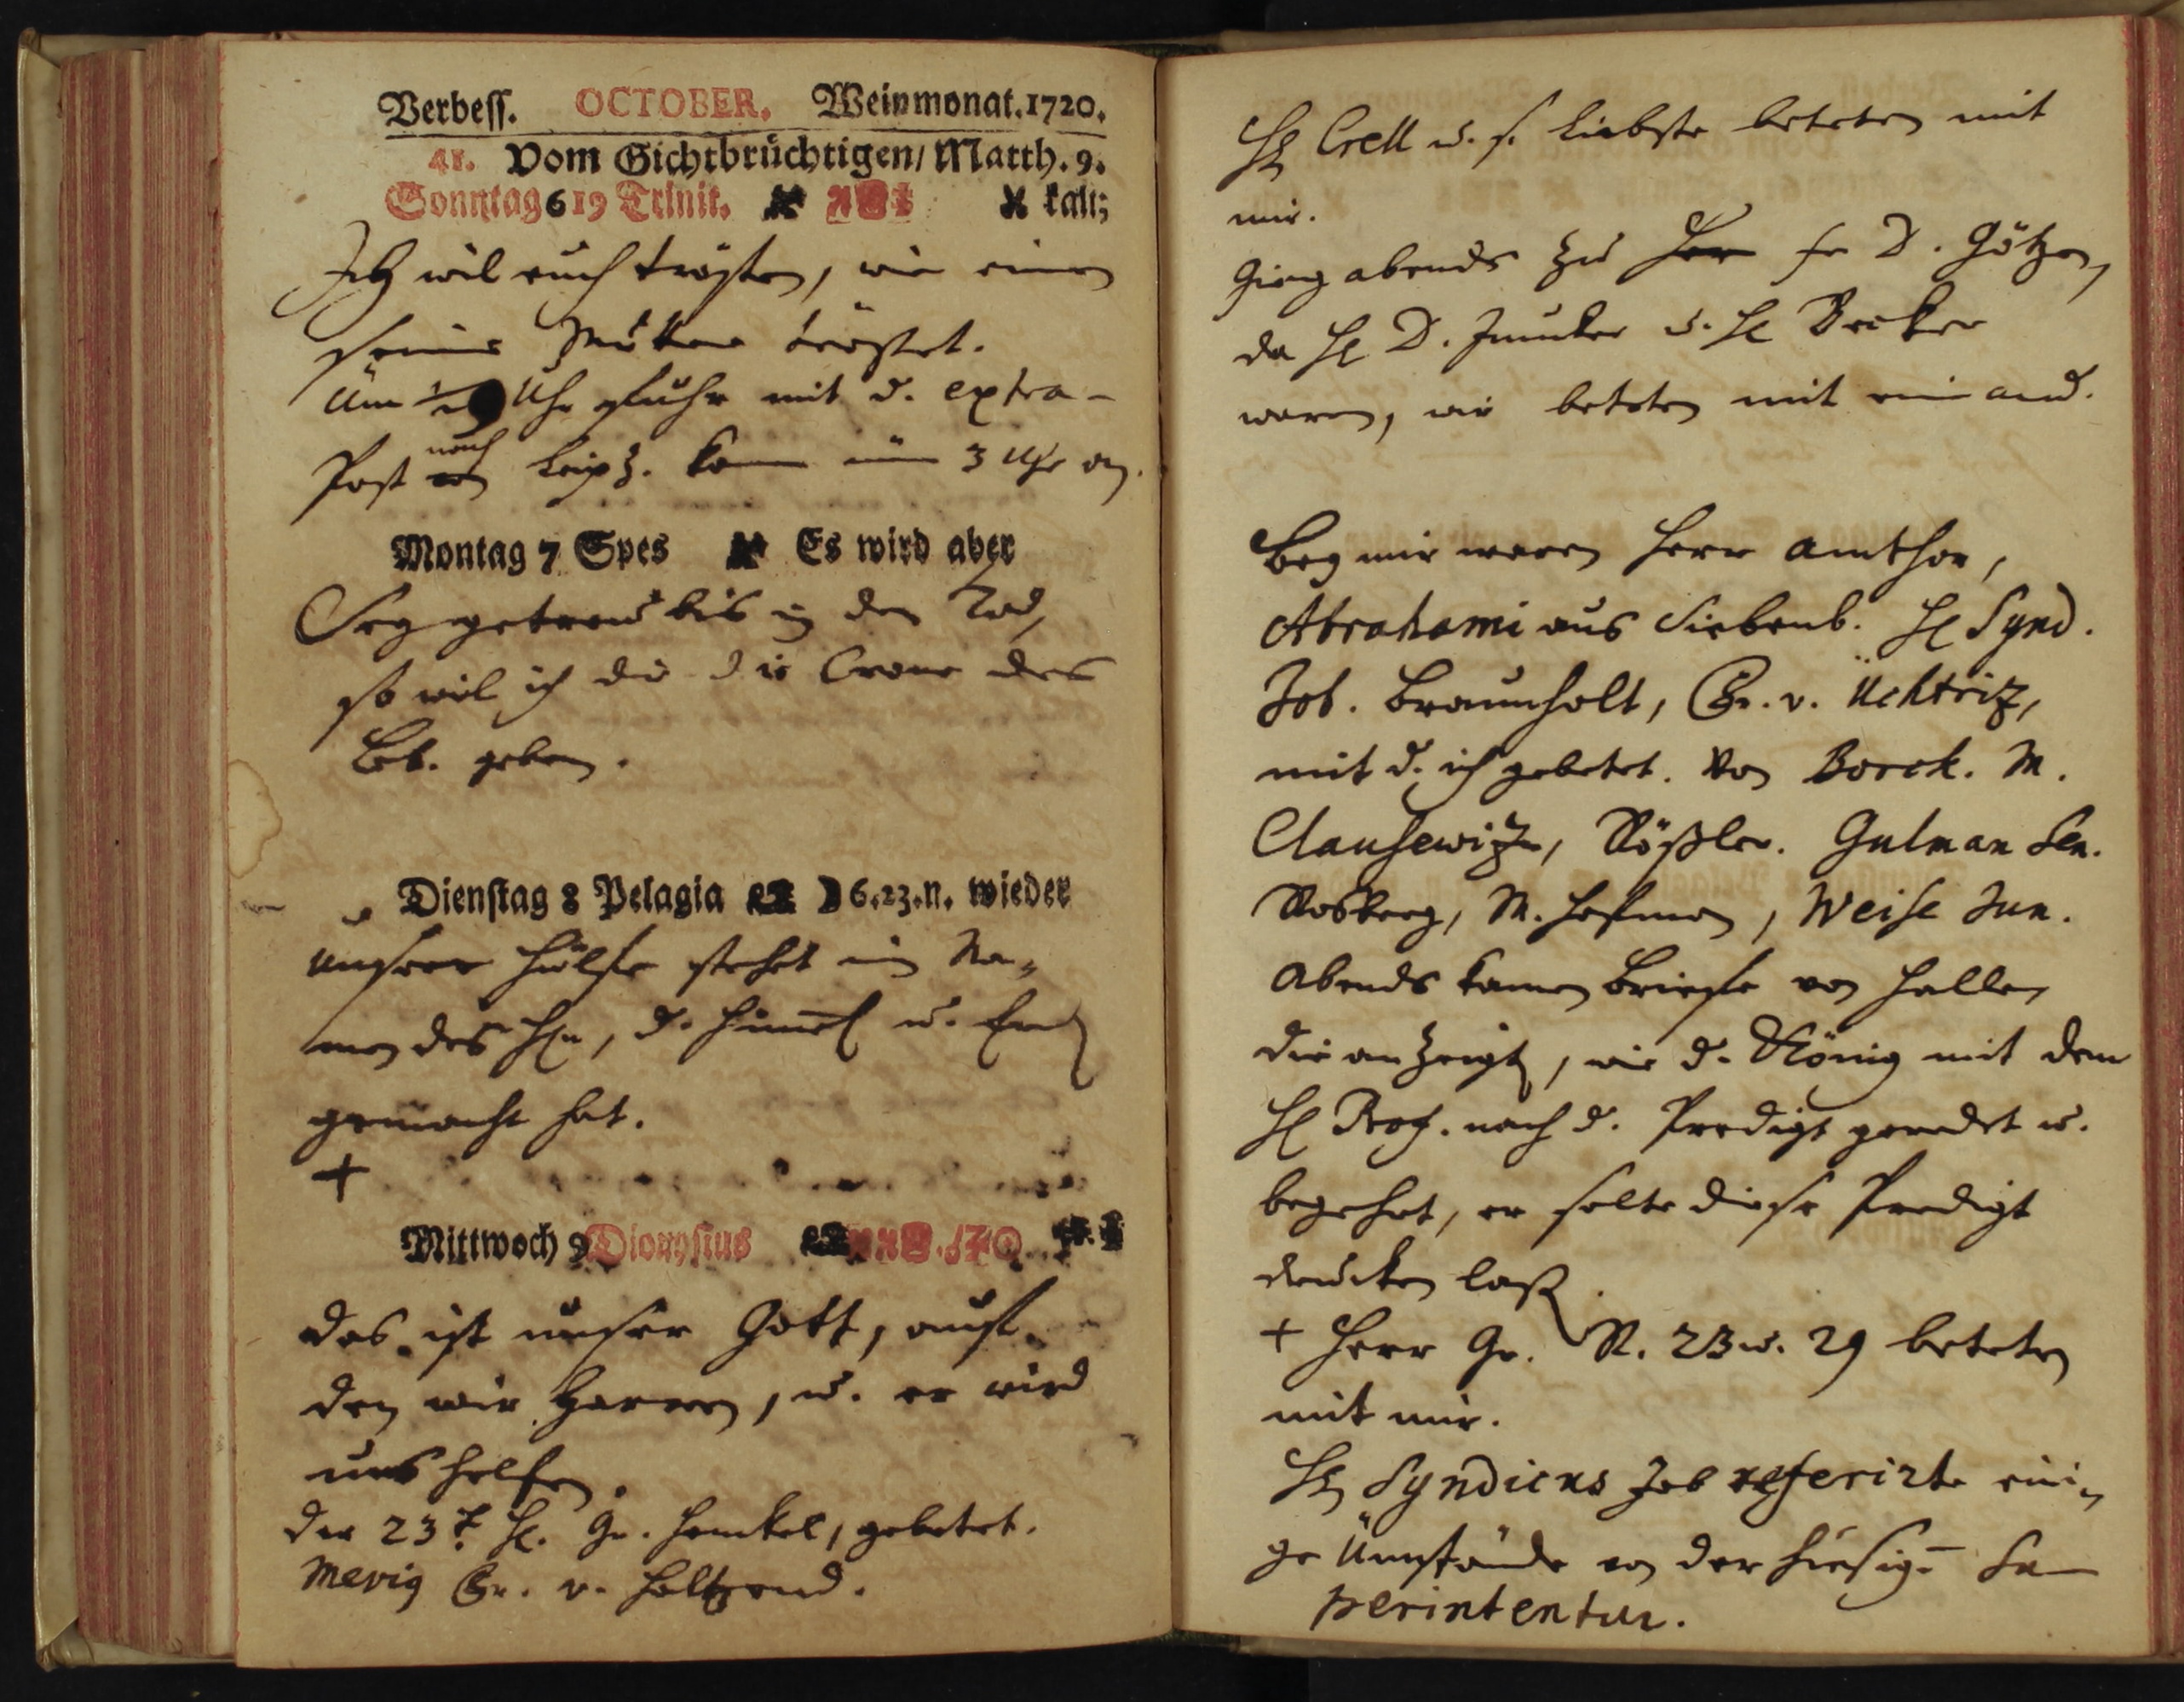 Verbess. OCTOBER. Weinmonat. 1720.
41. Vom Gichtbrüchtigen / Matth. 9.
Sonntag 6 19 Trinit. kalt;
Ich wil euch trösten, wie einen
seine Mutter tröstet.
Um 1/2 9 Uhr fuhr mit d. extra-
Post nach Leipz. kam um 3 Uhr an.
Montag 7 Spes Es wird aber
Sey getreu bis in den Tod,
so wil ich dir die Crone des
Leb. geben.
Dienstag 8 Pelagia 6.23.n. wieder
Unsere Hülfe stehet im Na-
men des Hrn, d. Himel u. Erd
gemacht hat.
+
Mittwoch 9 Dionysius
Das ist unser Gott, auf
den wir harren, u. er wird
uns helfen.
Der 23t. H. Gr. Henckel, gebetet.
Gr. v.
H Crell u. s. Liebste beteten mit
mir.
Ging abends zu Fr D. Götzen,
da H D. Juncker u. H Becker
waren, wir beteten mit einand.
Bey mir waren Herr Amthor,
Abrahami aus Siebenb. H Synd.
Job. Braunholt, Gr. v. Üchtriz,
mit d. ich gebetet. Von Borck. M.
Clausewiz, Rößler. Gulman Sen.
Rosberg, M. Hofman, Weise Jun.
Abends kamen Briefe von Halle,
die anzeigt, wie d. König mit dem
H Prof. nach d. Predigt geredet u.
begehrt, er solte diese Predigt
drucken laß.
+ Herr Gr. R. 23 u. 29 beteten
mit mir.
H Syndicus Job referirte eini-
ge Umstände von der hiesig. Su
perintentur.